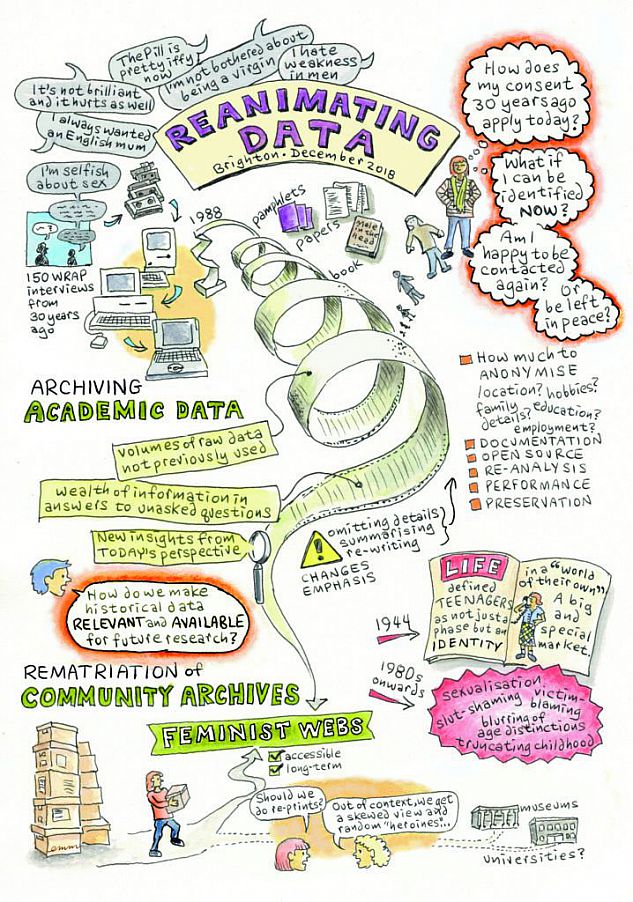 The Pill is
pretty iffy
now
I'm not bothered about
being a virgin
I hate
weakness
in men
It's not brilliant
and it hurts as well
I always wanted
an English mum
I'm selfish
about sex
REANIMATING
DATA
Brighton • December 2018
How does
my consent
30 years ago
apply today?
What if
I can be
identified
NOW?
Am I
happy to be
contacted
again?
Or
be left
in peace?
1988
pamphlets
papers
Male
in the
Head
book
150 WRAP
interviews
from
30 years
ago
ARCHIVING
ACADEMIC DATA
Volumes of raw data
not previously used
Wealth of information in
answers to unasked questions
New insights from
TODAY's perspective
How much to
ANONYMISE
location? hobbies?
family details? education?
employment?
DOCUMENTATION
OPEN SOURCE
RE-ANALYSIS
PERFORMANCE
PRESERVATION
omitting details
summarising
re-writing
!
CHANGES
EMPHASIS
How do we make
historical data
RELEVANT and AVAILABLE
for future research?
1944
LIFE
defined
TEENAGERS
as not just a
phase but an
IDENTITY
in a "world
of their own"
A big
and
special
market
1980s
onwards
sexualisation
slut-shaming victim-
blaming
blurring of
age distinctions
truncating childhood
REMATRIATION of
COMMUNITY ARCHIVES
FEMINIST WEBS
accessible
long-term
Should we
do re-prints?
Out of context, we get
a skewed view and
random "heroines"...
museums
universities?